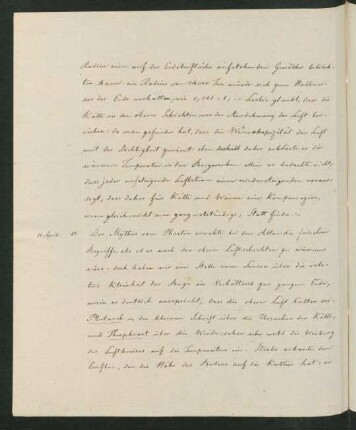 Radius einer auf der Erdoberfläche aufstehenden Gewölbes betrachten
kann ein Radius von 24000 Fuß würde sich zum Halbmesser
der Erde verhalten, wie 1,001 : 1, – Leslie glaubt, dass die
Kälte in den oberen Schichten von der Ausdehnung der Luft
herrühre. Da man gefunden hat, dass die Wärmekapazität der Luft
mit der Dichtigkeit zunimmt daher erklärte er die
wärmere Temperatur in den Bergwerken allein er bedachte nicht,
dass jeder aufsteigende Luftstrom einen niedersteigenden voraussetzt,
dass daher für Kälte und Wärme eine Kompensation,
wenn gleich nicht eine ganz vollständige, Statt finde. –
11 April. Der Mythos vom Phaeton erweckte bei den Alten die falschen
Begriffe als ob es nach den oberen Luftschichten zu wärmer
wäre. doch haben wir eine Stelle vom Seneca über die relative
Kleinheit der Berge im Verhältniss zur ganzen Erde,
worin er deutlich ausspricht, dass die obere Luft kälter sei
Plutarch in der kleinen Schrift über die Ursachen der Kälte,
und Theophrast über die Winde sahen sehr wohl die Wirkung
des Luftkreises auf die Temperatur ein. Strabo erkannte den
Einfluss, den die Höhe des Bodens auf die Kultur hat: er